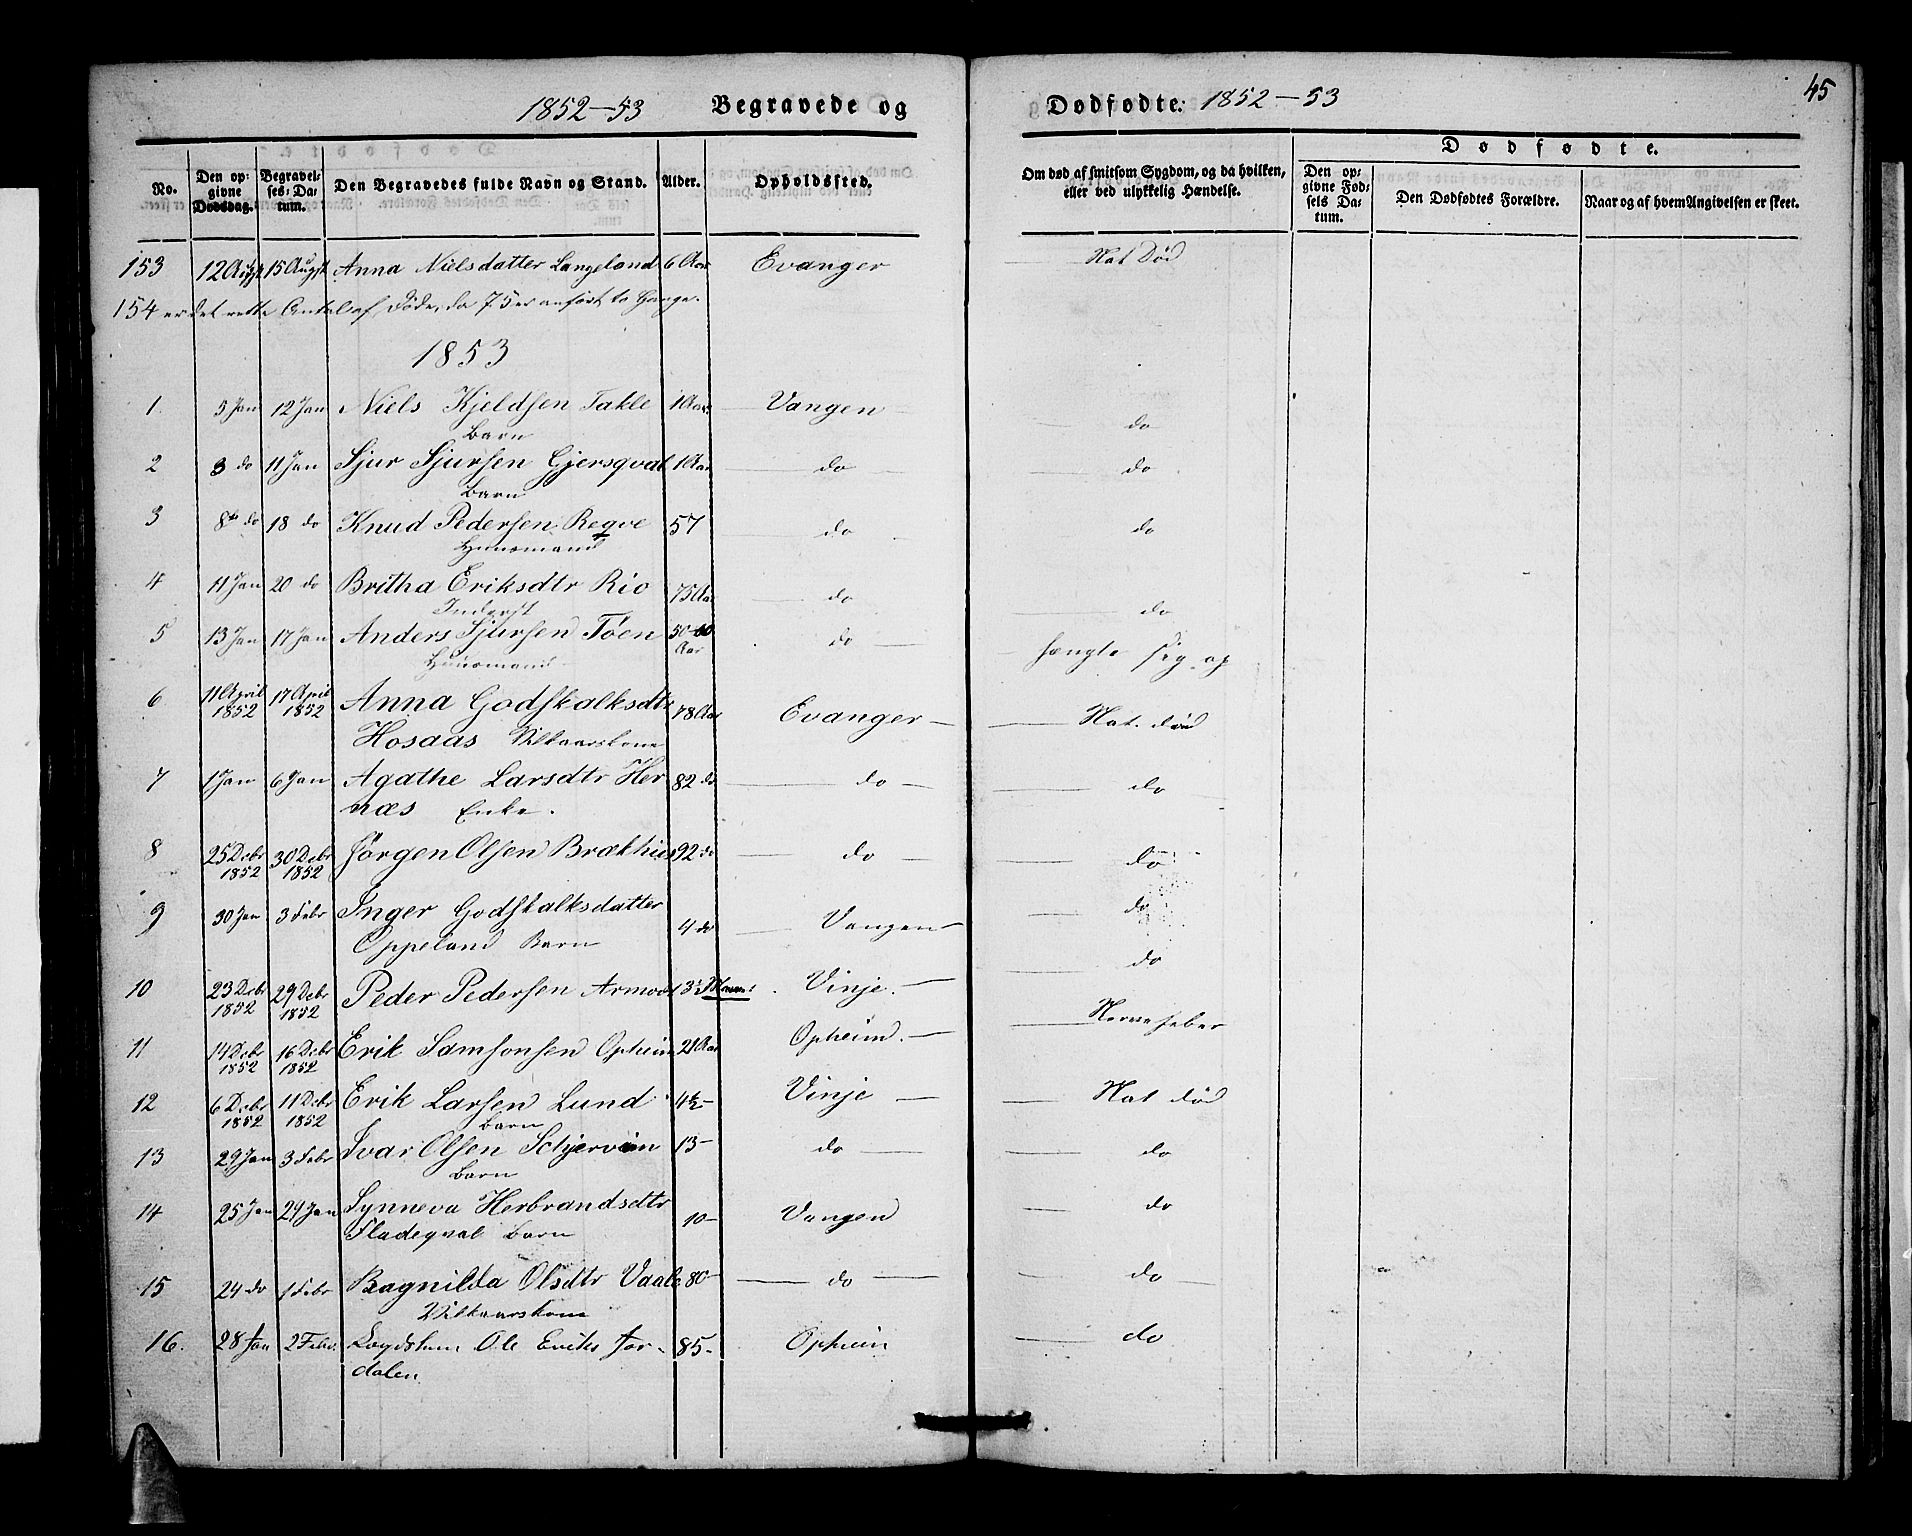 45
1852-53 Begravede og Dødfødte: 1852-53
No. Den opgivne Dødsdag. Begravelses-Datum. Den Begravedes fulde Navn og Stand. Alder. Opholdssted. Om død af smitsom Sygdom, og da hvilken, eller ved ulykkelig Hændelse. Dødfødte. Den opgivne Fødsels Datum. Den Dødfødtes Forældre. Naar og af hvem Angivelsen er skeet.
153 12 Augst 15 Augst Anna Nielsdatter Langeland 6 Aar Evanger Nat Død
154 er det rette Antal af Døde, da 75 er anført to Gange.
1853
1. 5 Jan 12 Jan Niels Kjeldsen Takle 1 Aar Vangen do
Barn
2 3 do 11 Jan Sjur Sjursen Gjersqval 1 Aar do do
Barn
3 8de do 18 do Knud Pedersen Reqve 57 do do
Huusmand
4 11 Jan 20 do Britha Eriksdtr Rio 75 Aar do do
Inderst
5 13 Jan 17 Jan Anders Sjursen Tøen 50-60 Aar do hængte sig op
Huusmand
6 11 April 1852 17 April 1852 Anna Godskalksdtr 78 Aar Evanger Nat. død
Hosaas Vilkaarskone
7 1 Jan 6 Jan Agathe Larsdtr Her 82 do do do
næs Enke.
8 25 Debr 1852 30 Debr 1852 Jørgen Olsen Brækhus 92 do do do
9 30 Jan 3 Febr Inger Godskalksdatter 4 do Vangen do
Oppeland Barn
10 23 Debr 1852 29 Debr 1852 Peder Pedersen Armod 3 Maan: Vinje do
11 14 Debr 1852 16 Debr 1852 Erik Samsonsen Opheim 21 Aar Opheim Nervefeber
12 6 Debr 1852 11 Debr 1852 Erik Larsen Lund 4½ Vinje Nat død
Barn
13 29 Jan 3 Febr Ivar Olsen Schjerven 13 do do
Barn
14 25 Jan 29 Jan Synneva Herbrandsdtr 10 Vangen do
Fladeqval Barn
15 24 do 1 Febr Ragnilda Olsdtr Vaale 80 do do
Vilkaarskone
16. 28 Jan 2 Febr. Ole Eriks Jor- 85 Opheim do
dalen